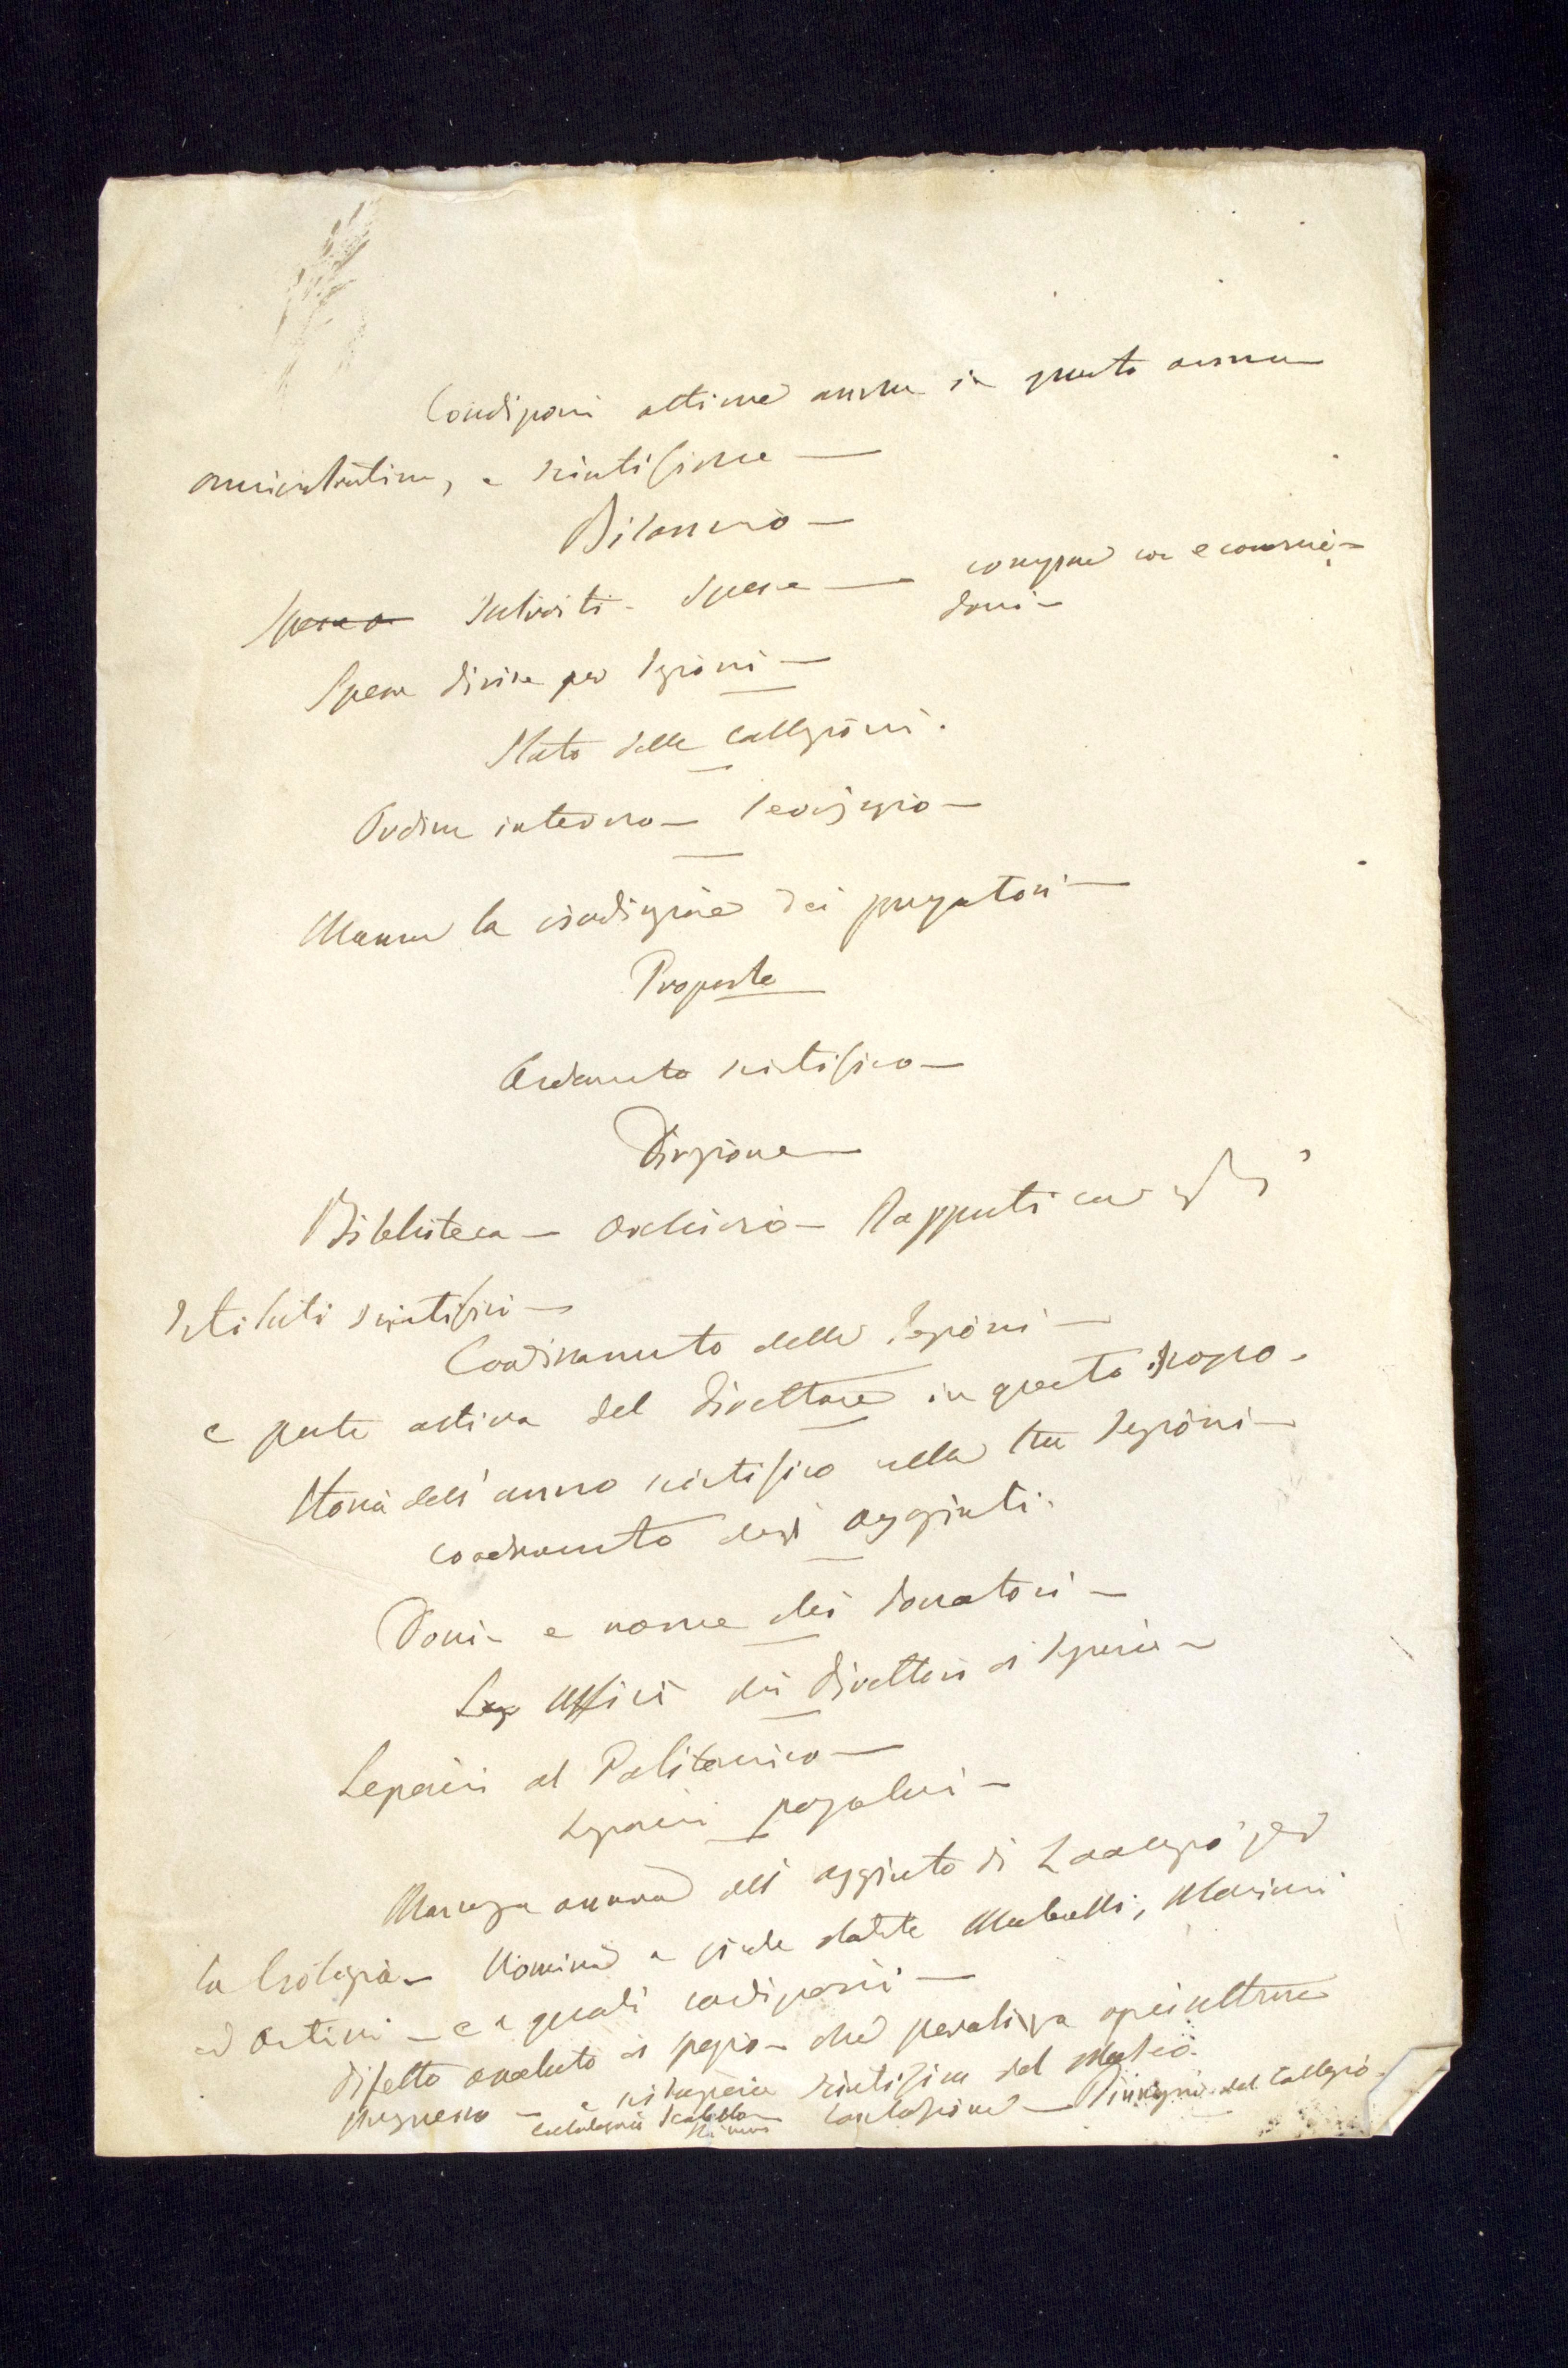 Condizioni ottime anche in questo anno
amministrative, e scientifiche —
Bilancio —
Spese Introiti - Spese — compreso con economie —
doni —
Spese divise per Sezioni —
Stato delle Collezioni.
Ordine interno — Servizio —
Manca la indicazione dei preparatori —
Proposte
Andamento scientifico —
Direzione —
Biblioteca — Archivio — Rapporti con gli
Istituti scientifici —
Coordinamento delle Sezioni —
e parte attiva del Direttore in questo scopo.
Storia dell'anno scientifico nelle tre Sezioni —
coordinamento degli aggiunti.
Doni — e nome dei donatori —
Uffici dei Direttori di Sezione —
Lezioni al Politecnico —
Lezioni popolari —
Mancanza ancora dell'aggiunto di Zoologia per
la Geologia — Nomina
ed Artini — e a quali condizioni —
Difetto assoluto di spazio — che paralizza ogni ulteriore
progresso — scientifica del Museo.
Conclusione — del Collegio.